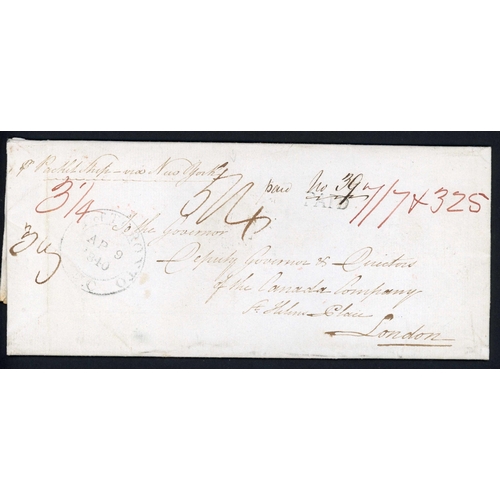 Packet Ship — via New York
3/4
paid No 39
PAID
1/17 & 325
AP 9
1840
To the Governor
Deputy Governor & Directors
of the Canada Company
St Helens Place
London